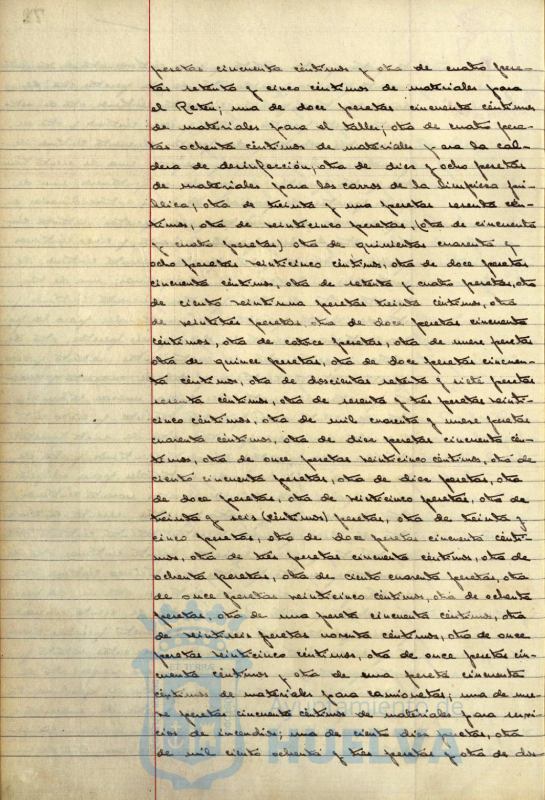 pesetas cincuenta céntimos y otra de cuatro pese-
tas setenta y cinco céntimos de materiales para
el Retén; una de doce pesetas cincuenta céntimos
de materiales para el taller; otra de cuatro pese-
tas ochenta céntimos de materiales para la cal-
dera de desinfección, otra de diez y ocho pesetas
de materiales para los carros de la limpieza pú-
blica; otra de treinta y una pesetas sesenta cén-
timos, otra de veinticinco pesetas, (otra de cincuenta
y cuatro pesetas) otra de quinientas cuarenta y
ocho pesetas veinticinco céntimos, otra de doce pesetas
cincuenta céntimos, otra de setenta y cuatro pesetas, otra
de ciento veintiuna pesetas treinta céntimos, otra
de veintitrés pesetas, otra de doce pesetas cincuenta
céntimos, otra de catorce pesetas, otra de nueve pesetas
otra de quince pesetas, otra de doce pesetas cincuen-
ta céntimos, otra de doscientas setenta y siete pesetas
sesenta céntimos, otra de sesenta y tres pesetas veinti-
cinco céntimos, otra de mil cuarenta y nueve pesetas
cuarenta céntimos, otra de diez pesetas cincuenta cén-
timos, otra de once pesetas veinticinco céntimos, otra de
ciento cincuenta pesetas, otra de diez pesetas, otra
de doce pesetas, otra de veinticinco pesetas, otra de
treinta y seis (céntimos) pesetas, otra de treinta y
cinco pesetas, otra de doce pesetas cincuenta cénti-
mos, otra de tres pesetas cincuenta céntimos, otra de
ochenta pesetas, otra de ciento cuarenta pesetas, otra
de once pesetas veinticinco céntimos, otra de ochenta
pesetas, otra de una peseta cincuenta céntimos, otra
de veintiseis pesetas noventa céntimos, otra de once
pesetas veinticinco céntimos, otra de once pesetas cin-
cuenta céntimos y otra de una peseta cincuenta
céntimos de materiales para camionetas; una de nue-
ve pesetas cincuenta céntimos de materiales para servi-
cios de incendios; una de ciento diez pesetas, otra
de mil ciento ochenta y tres pesetas y otra de dos-
Ayuntamiento de
HUELVA